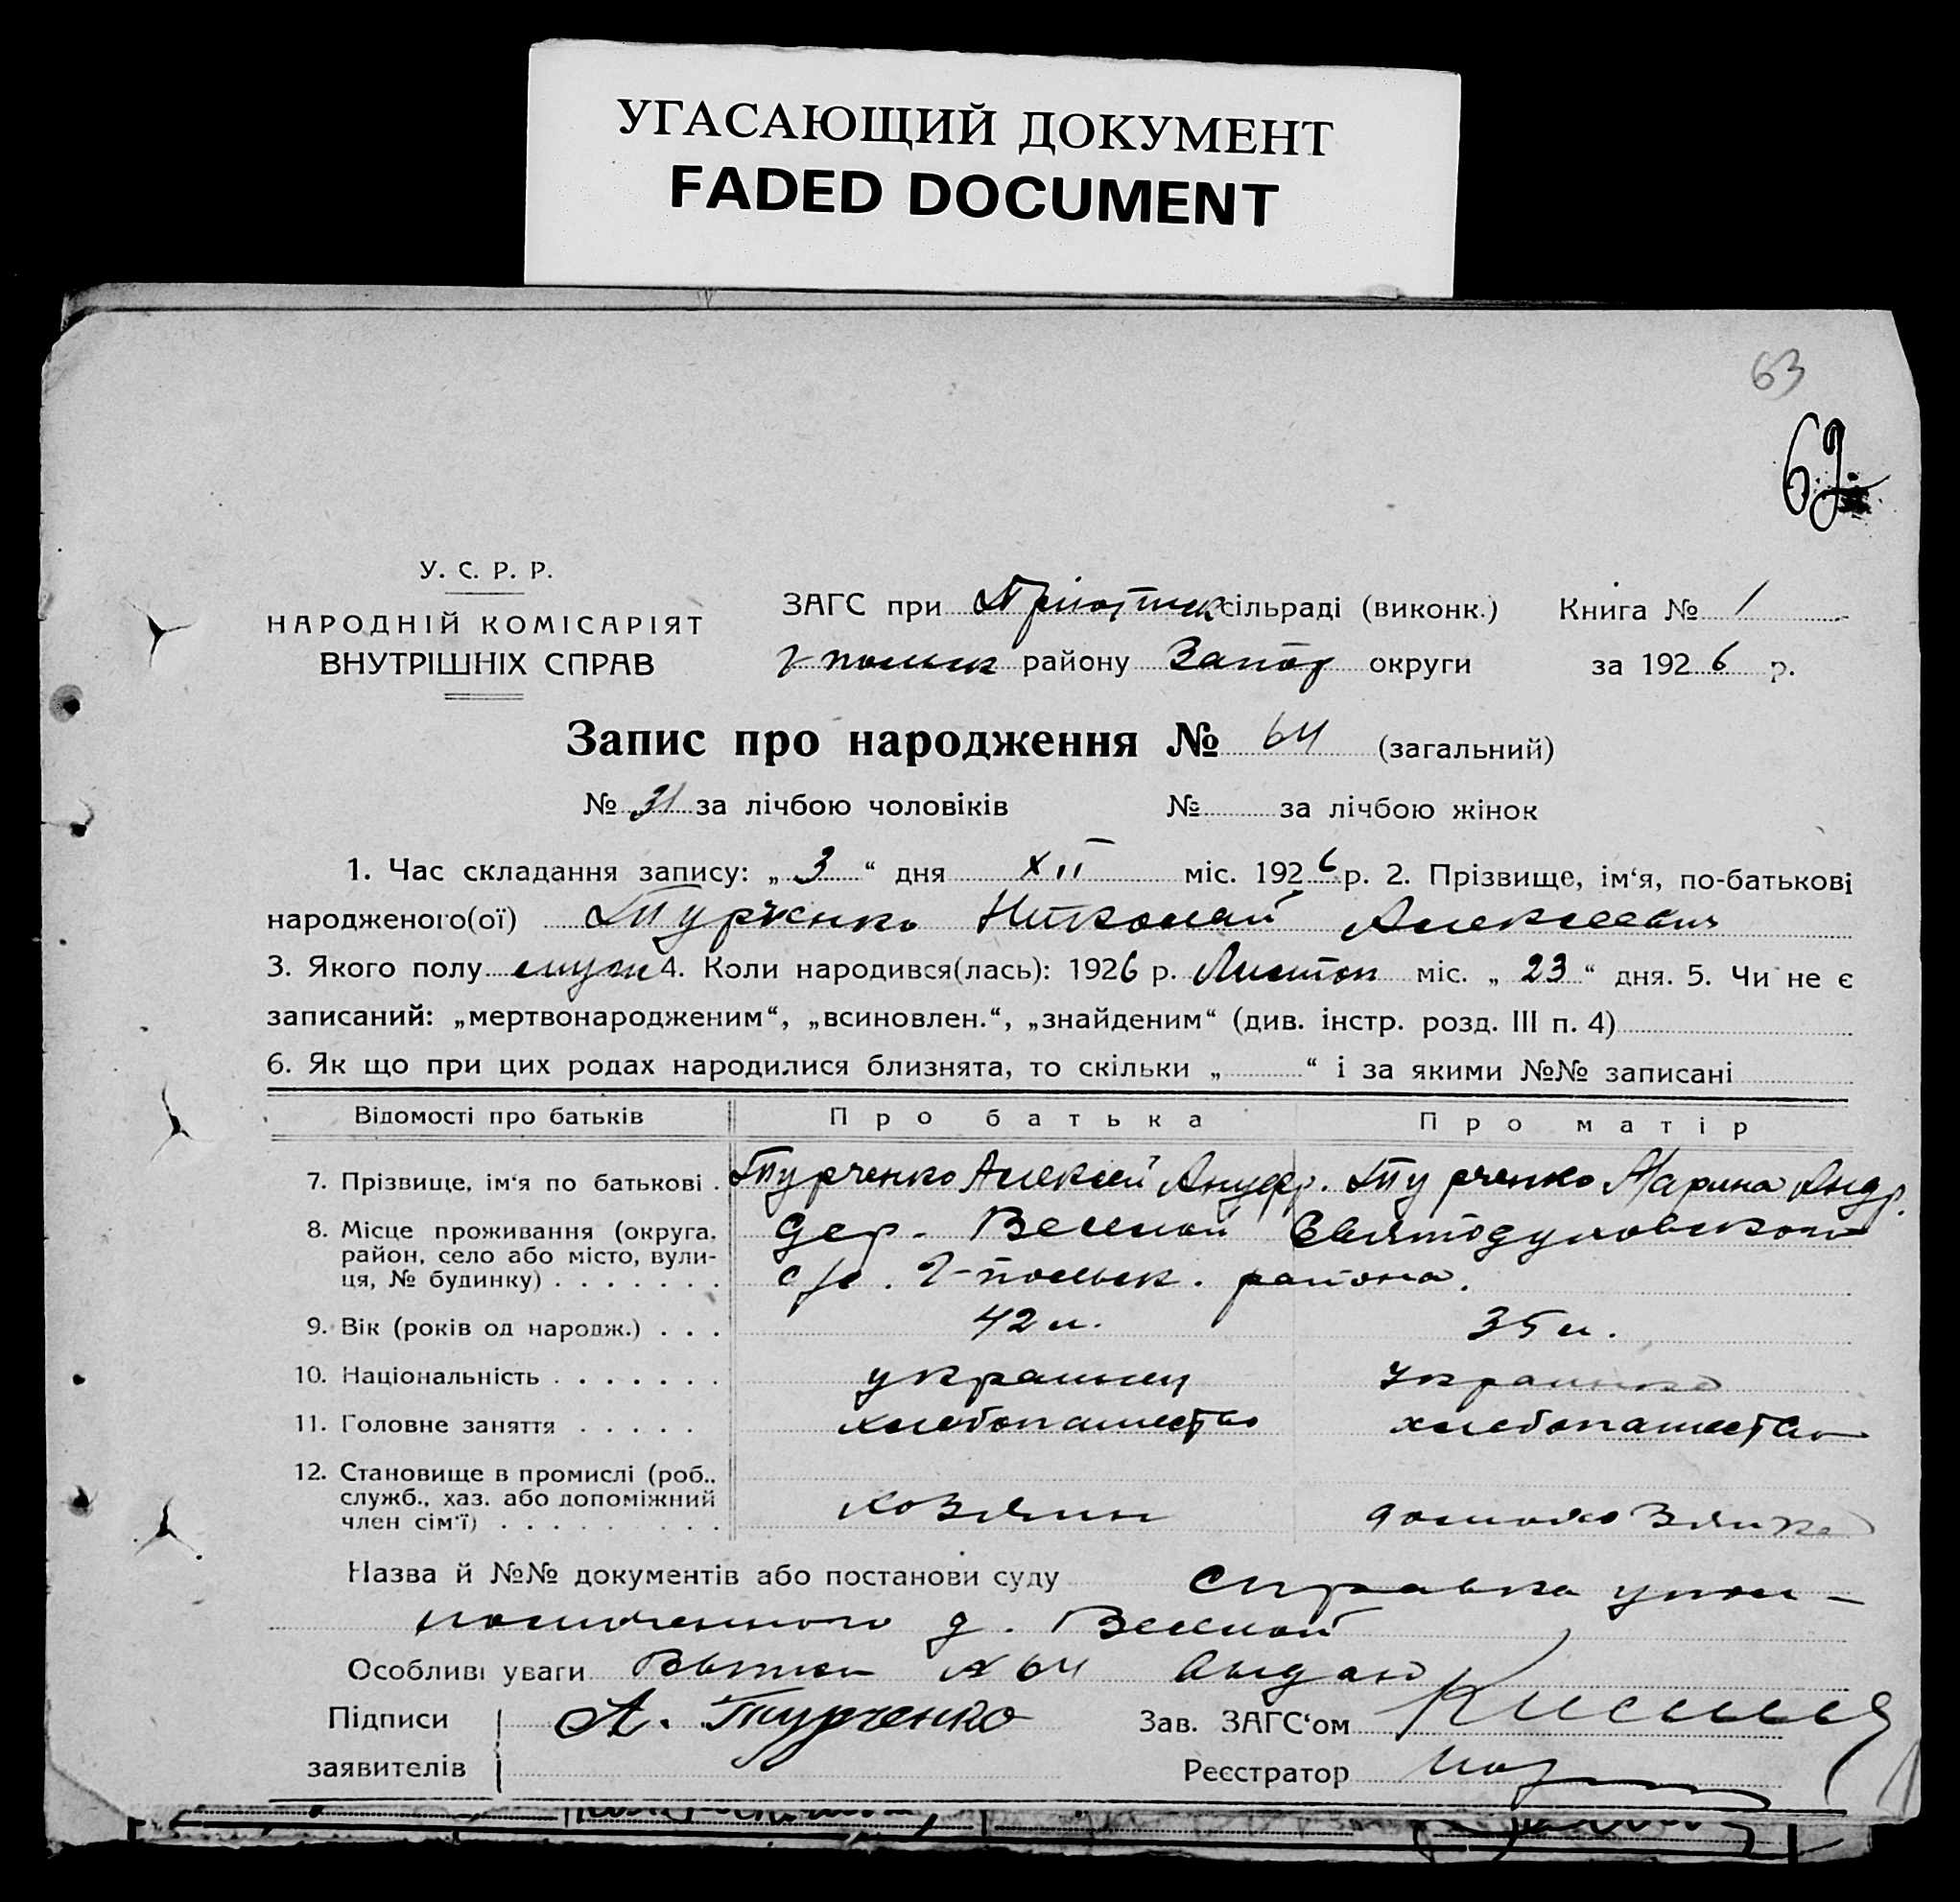 УГАСАЮЩИЙ ДОКУМЕНТ
FADED DOCUMENT
63
62
У. С. Р. Р.
НАРОДНІЙ КОМІСАРІЯТ
ВНУТРІШНІХ СПРАВ
ЗАГС при сільраді (виконк.) Книга № 1
г-польск району Запор округи за 1926 р.
Запис про народження № 64 (загальний)
№ 31 за лічбою чоловіків № за лічбою жінок
1. Час складання запису: „ 3 “ дня XII міс. 1926 р. 2. Прізвище, ім‘я, по-батькові
народженого(ої) Турченко Николай Алексеевич
3. Якого полу муж 4. Коли народився(лась): 1926 р. Листоп міс. „ 23 “ дня. 5. Чи не є
записаний: „мертвонародженим“, „всиновлен.“, „знайденим“ (див. інстр. розд. III п. 4)
6. Як що при цих родах народилися близнята, то скільки „ “ і за якими №№ записані
Відомості про батьків Про батька Про матір
7. Прізвище, ім‘я по батькові . Турченко Алексей Ануфр. Турченко Марина Андр.
8. Місце проживання (округа, район, село або місто, вули- ця, № будинку) . . . . . . . дер. Веселой Святодуховского
с/с. г-польск. района.
9. Вік (років од народж.) . . . 42 л. 35 л.
10. Національність . . . . . . . украинец украинка
11. Головне заняття . . . . . хлебопашество хлебопашество
12. Становище в промислі (роб., служб., хаз. або допоміжний член сім‘ї) . . . . . . . . . хозяин домохозяйка
Назва й №№ документів або постанови суду Справка упол-
номоченного д. Веселой
Особливі уваги Выпись № 64 выдан
Підписи А. Турченко Зав. ЗАГС‘ом
заявителів Реєстратор